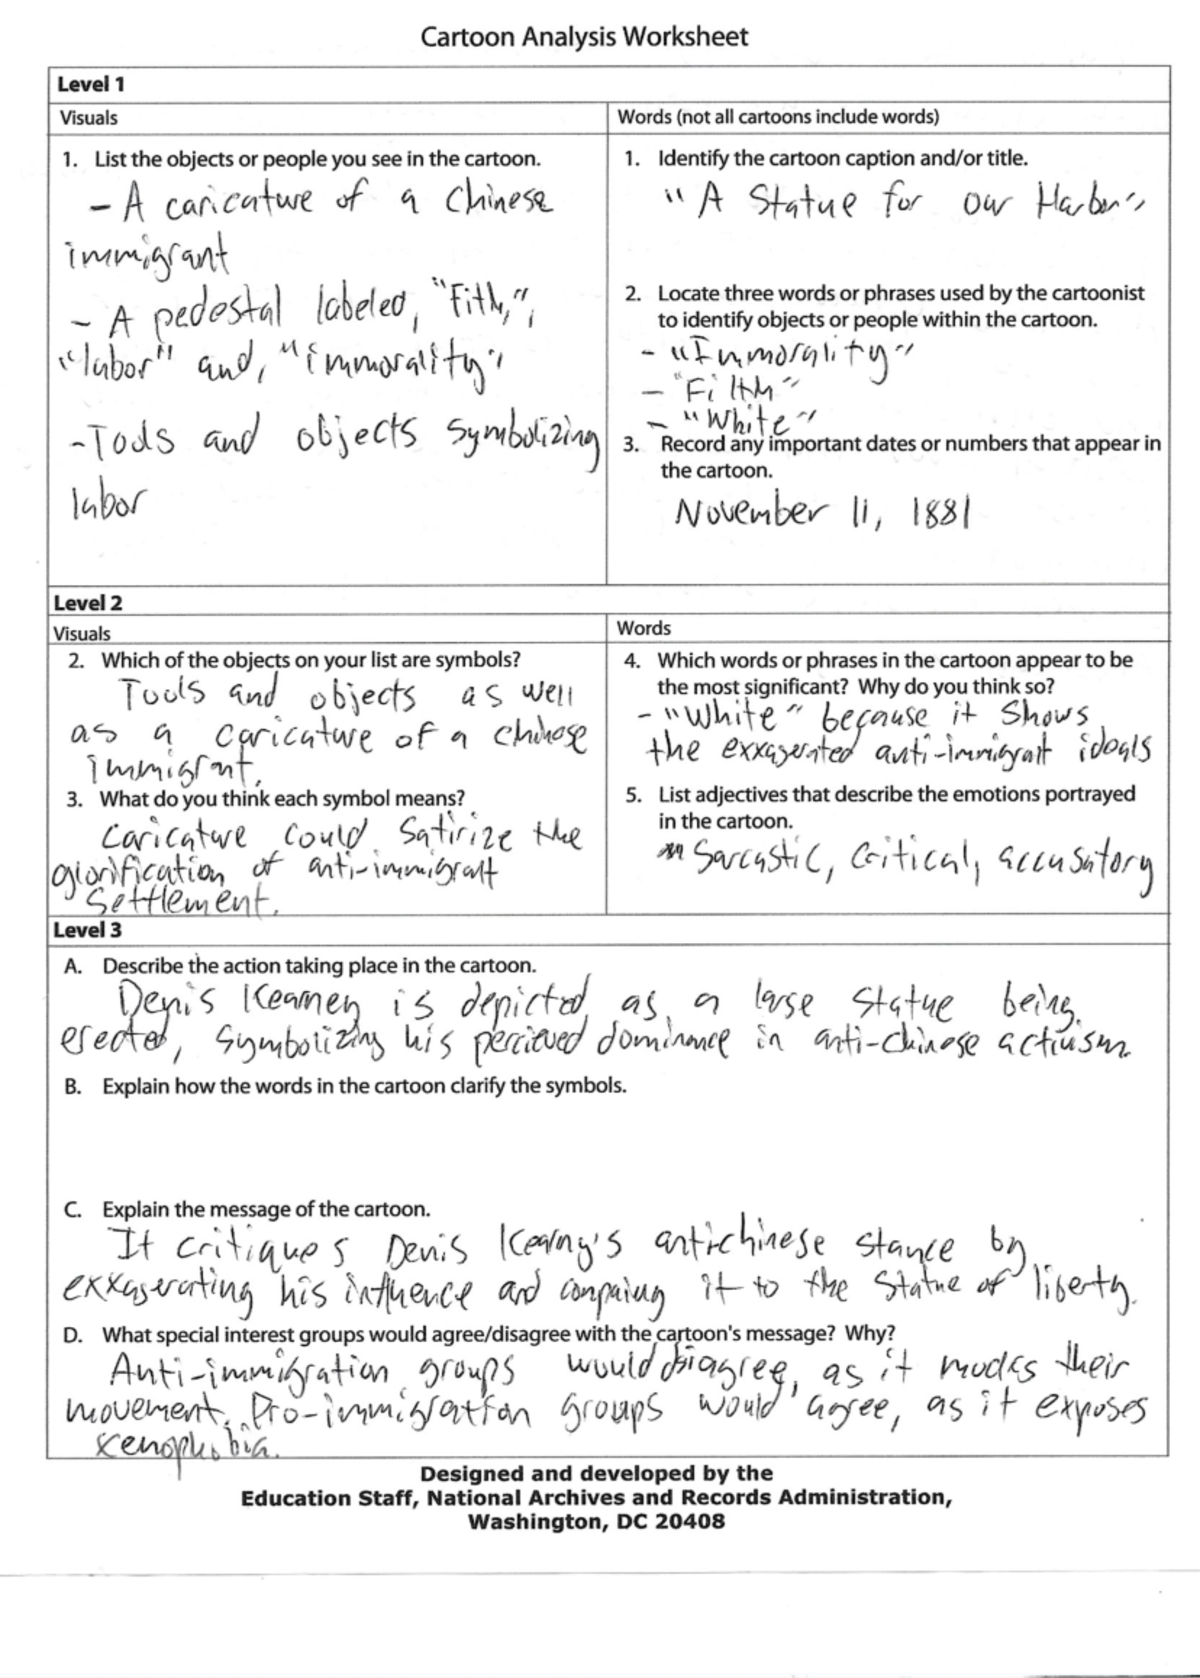 Cartoon Analysis Worksheet
Level 1
Visuals
1. List the objects or people you see in the cartoon.
- A caricature of a Chinese
immigrant
- A pedestal labeled, "Filth,",
"labor" and, "immorality"
-Tools and objects symbolizing
labor
Words (not all cartoons include words)
1. Identify the cartoon caption and/or title.
"A Statue for our Harbor"
2. Locate three words or phrases used by the cartoonist
to identify objects or people within the cartoon.
- "Immorality"
- "Filth"
- "White"
3. Record any important dates or numbers that appear in
the cartoon.
November 11, 1881
Level 2
Visuals
2. Which of the objects on your list are symbols?
Tools and objects as well
as a caricature of a chinese
immigrant.
3. What do you think each symbol means?
Caricature could satirize the
glorification of anti-immigrant
Settlement.
Words
4. Which words or phrases in the cartoon appear to be
the most significant? Why do you think so?
- "White" because it shows
the exxagerated anti-immigrant ideals
5. List adjectives that describe the emotions portrayed
in the cartoon.
Sarcastic, Critical, accusatory
Level 3
A. Describe the action taking place in the cartoon.
Denis Kearney is depicted as a large statue being
erected, symbolizing his percieved dominance in anti-chinese activism.
B. Explain how the words in the cartoon clarify the symbols.
C. Explain the message of the cartoon.
It critiques Denis Kearny's anti-chinese stance by
exxagerating his influence and comparing it to the Statue of liberty.
D. What special interest groups would agree/disagree with the cartoon's message? Why?
Anti-immigration groups would disagree, as it mocks their
movement. Pro-immigration groups would agree, as it exposes
xenophobia.
Designed and developed by the
Education Staff, National Archives and Records Administration,
Washington, DC 20408